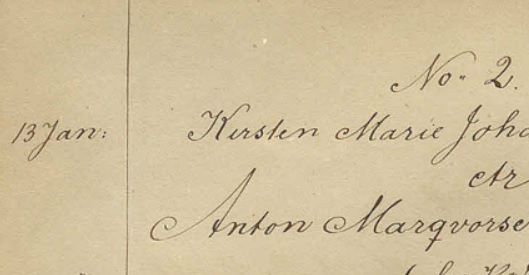 No. 2.
13 Jan: Kirsten Marie Joha
Anton Marqvorse